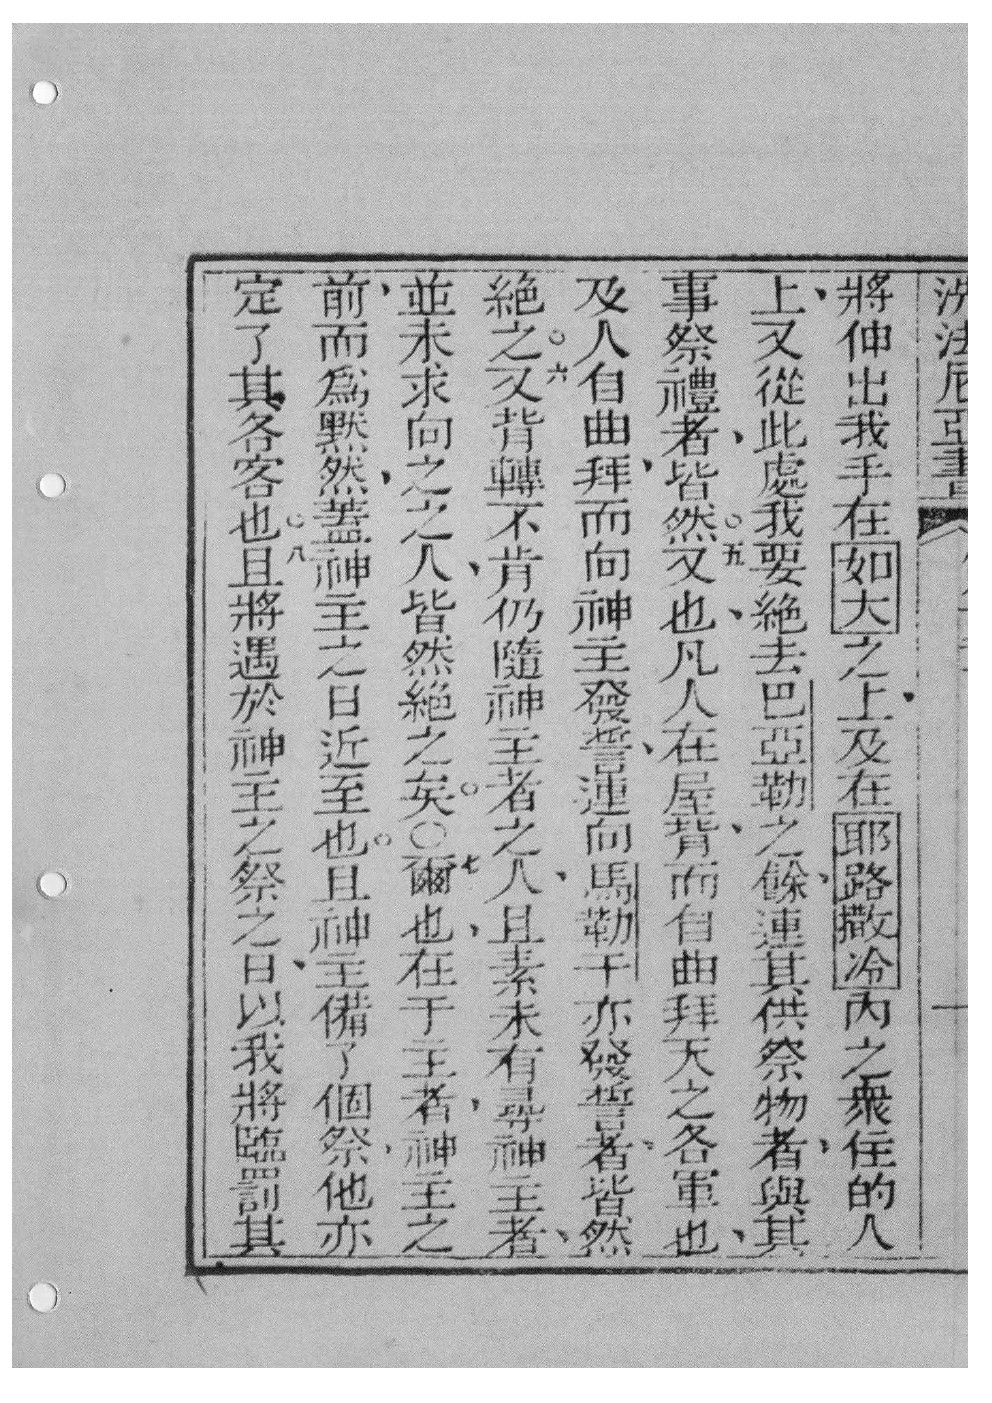 洗法尼亞書
將伸出我手在如大之上、及在耶路撒冷內之衆住的人
上、又從此處我要絕去巴亞勒之餘、連其供祭物者、與其
事祭禮者、皆然。五又也、凡人在屋背、而自曲拜天之各軍也、
及人自曲拜、而向神主發誓、連向馬勒干亦發誓者、皆然
絕之。六又背轉不肯仍隨神主者之人、且素未有尋神主者、
並未求向之之人、皆然絕之矣。○七爾也、在于主者、神主之
前、而爲默然、蓋神主之日近至也。且神主備了個祭、他亦
定了其各客也。八且將遇於神主之祭之日、以我將臨罰其